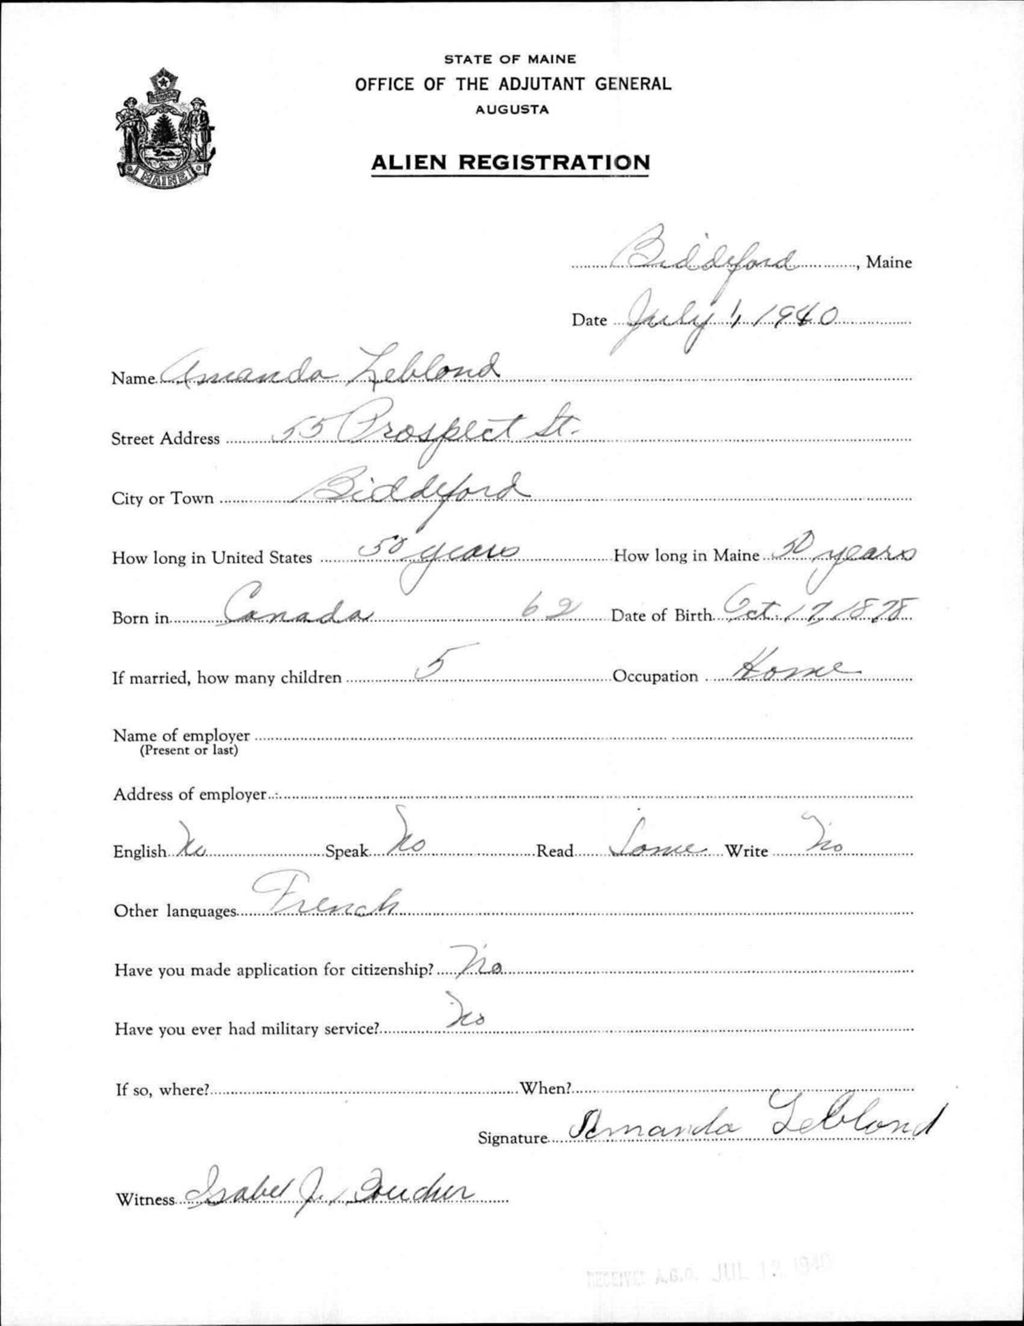 STATE OF MAINE
OFFICE OF THE ADJUTANT GENERAL
AUGUSTA
ALIEN REGISTRATION
MAINE
Biddeford, Maine
Date July 1, 1940
Name Amanda Leblond
Street Address 55 Prospect St.
City or Town Biddeford
How long in United States 50 years How long in Maine 50 years
Born in Canada 62 Date of Birth Oct. 17, 1878
If married, how many children 5 Occupation Home
Name of employer
(Present or last)
Address of employer
English No Speak No Read Some Write No
Other languages French
Have you made application for citizenship? No
Have you ever had military service? No
If so, where? When?
Signature Amanda Leblond
Witness Isabel J.
RECEIVED A.G.O. JUL 12 1940